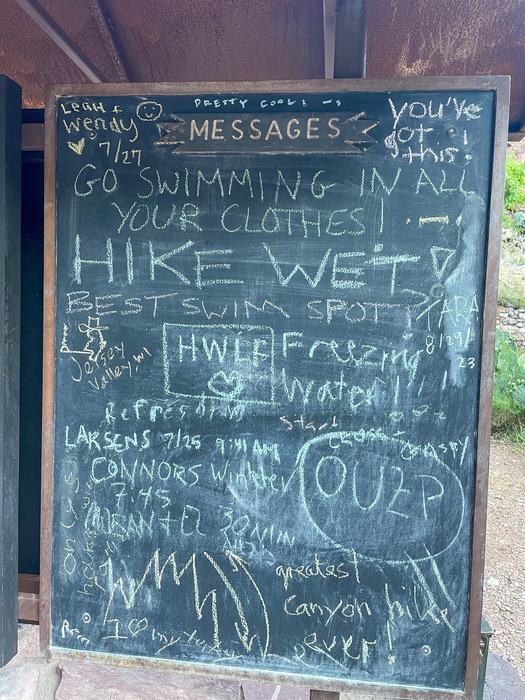 Leah +
Wendy
7/27
PRETTY COOL!
MESSAGES
you've
got
this!
GO SWIMMING IN ALL
YOUR CLOTHES!
HIKE WET
BEST SWIM SPOT
8/29/
23
Jersey
Valley, WI
HWLF
Freezing
Water!!!
Refreshing
Start
LARSENS 7/25 9:31 AM
CONNORS
7:45
greatest
Canyon hike
ever!
I ♡ my